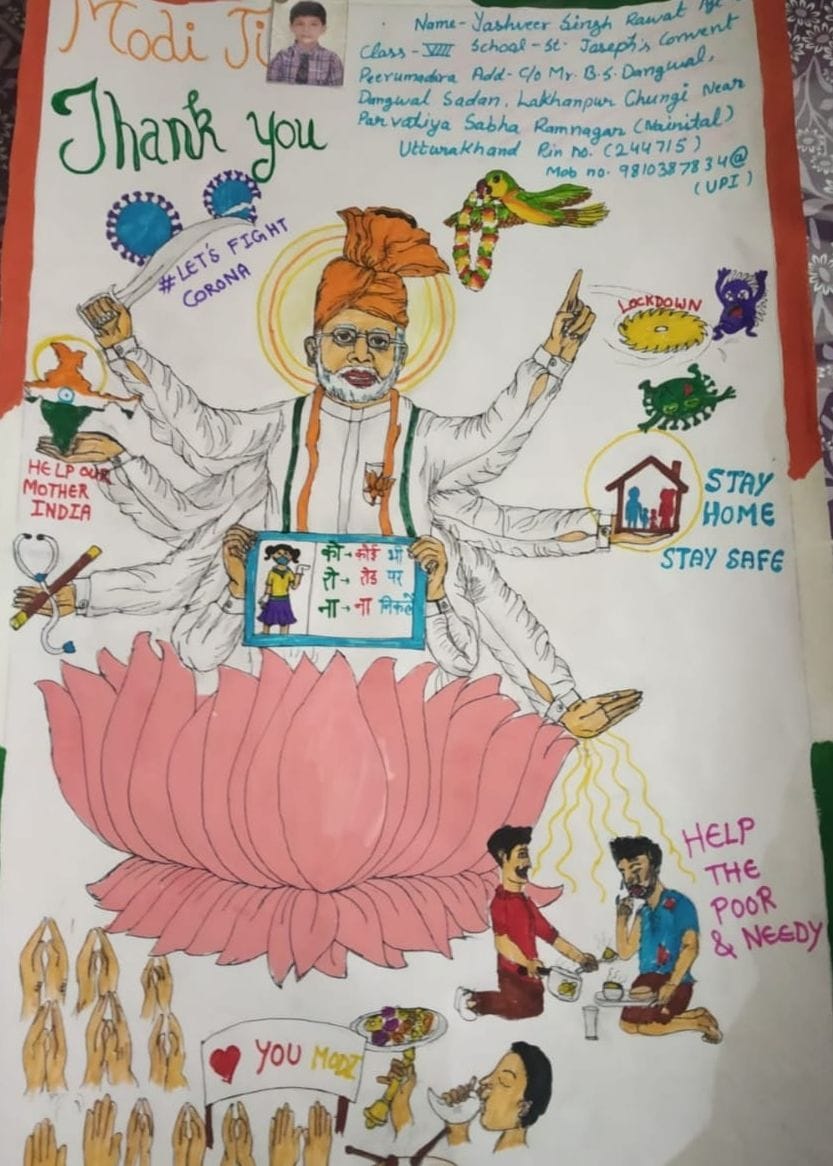 Modi Ji
Thank you
Name- Yashveer Singh Rawat
Class- VIII School- St. Joseph's Convent
Peerumadara Add- C/o Mr. B.S. Dangwal,
Dangwal Sadan, Lakhanpur Chungi Near
Parvatiya Sabha Ramnagar (Nainital)
Uttarakhand Pin no. (244715)
Mob no. 9810387834@
(UPI)
#LET'S FIGHT
CORONA
LOCKDOWN
HELP OUR
MOTHER
INDIA
STAY
HOME
STAY SAFE
को → कोई भी
रो → रोड पर
ना → ना निकलें
HELP
THE
POOR
& NEEDY
YOU MODI